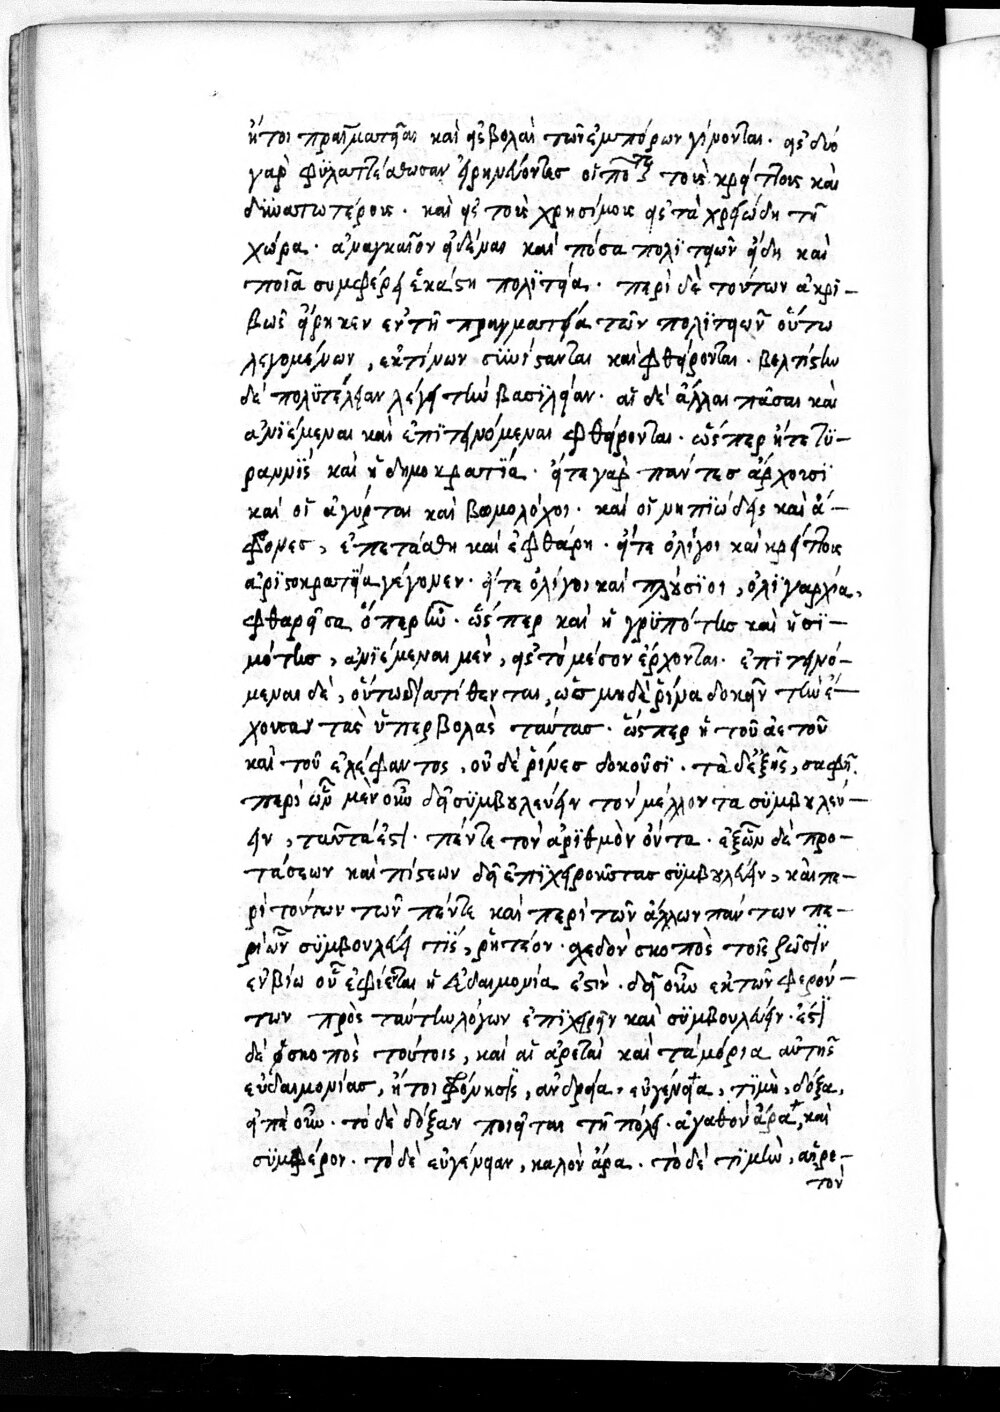 ἤτοι πραγματεῖαι καὶ εἰσβολαὶ τῶν ἐμπόρων γίνονται. εἰς δύο
γὰρ φυλαττέσθωσαν εἰρηνεύοντες οἱ πολῖται τοὺς κρείττους καὶ
δυνατωτέρους. καὶ εἰς τοὺς χρησίμους εἰς τὰ χρειώδη τῇ
χώρα. ἀναγκαῖον εἰδέναι καὶ πόσα πολιτειῶν εἴδη καὶ
ποῖα συμφέρει ἑκάστη πολιτεία. περὶ δὲ τούτων ἀκρι-
βῶς εἴρηκεν ἐν τῇ πραγματεία τῶν πολιτειῶν οὕτω
λεγομένων, ἐκ τίνων συνίστανται καὶ φθείρονται. βελτίστην
δὲ πολυτέλειαν λέγει τὴν βασιλείαν. αἱ δὲ ἄλλαι πᾶσαι καὶ
ἀνιέμεναι καὶ ἐπιτεινόμεναι φθείρονται. ὥσπερ ἥτε τυ-
ραννὶς καὶ ἡ δημοκρατία. εἴτε γὰρ πάντες ἄρχουσι
καὶ οἱ ἀγύρται καὶ βωμολόχοι. καὶ οἱ νηπιώδεις καὶ ἄ-
φρονες, ἐπετάσθη καὶ ἐφθάρη. εἴτε ὀλίγοι καὶ κρείττους
ἀριστοκρατεία γέγονεν. εἴτε ὀλίγοι καὶ πλούσιοι, ὀλιγαρχία,
φθαρεῖσα ὅπερ ἦν. ὥσπερ καὶ ἡ γρυπότης καὶ ἡ σι-
μότης, ἀνιέμεναι μὲν, εἰς τὸ μέσον ἔρχονται. ἐπιτεινό-
μεναι δὲ, οὕτω διατίθενται, ὡς μηδὲ ῥῖνα δοκεῖν τὴν ἔ-
χουσαν τὰς ὑπερβολὰς ταύτας. ὥσπερ ἡ τοῦ ἀετοῦ
καὶ τοῦ ἐλέφαντος, οὐδὲ ῥῖνες δοκοῦσι. τὰ δ' ἑξῆς, σαφῆ.
περὶ ὧν μὲν οὖν δεῖ συμβουλεύειν τὸν μέλλοντα συμβουλεύ-
ειν, ταῦτα ἐστὶ. πέντε τὸν ἀριθμὸν ὄντα. ἐξ ὧν δὲ προ-
τάσεων καὶ πίστεων δεῖ ἐπιχειροῦντας συμβουλεύειν, καὶ πε-
ρὶ τούτων τῶν πέντε καὶ περὶ τῶν ἄλλων πάντων πε-
ρὶ ὧν συμβουλεύει τὶς, ῥητέον. σχεδὸν σκοπὸς τοῖς ζῶσιν
ἐν βίω οὗ ἐφίεται ἡ εὐδαιμονία ἐστὶν. δεῖ οὖν ἐκ τῶν φερόν-
των πρὸς ταύτην λόγων ἐπιχειρεῖν καὶ συμβουλεύειν. ἐστὶ
δὲ ὁ σκοπὸς τούτοις, καὶ αἱ ἀρεταὶ καὶ τὰ μόρια αὐτῆς
εὐδαιμονίας, ἤτοι φρόνησις, ἀνδρεία, εὐγένεια, τιμὴ, δόξα,
εἰπὲ οὖν. τὸ δὲ δόξαν ποιεῖται τῇ πόλει. ἀγαθὸν ἄρα, καὶ
συμφέρον. τὸ δὲ εὐγένειαν, καλὸν ἄρα. τὸ δὲ τιμὴν, αἱρε-
τὸν